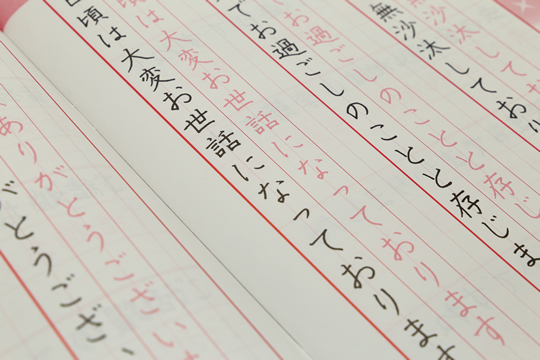 沙汰してお
無沙汰しており
お過ごしのことと存じ
てお過ごしのことと存じま
頃は大変お世話になっております
頃は大変お世話になっております
ありがとうございま
がとうござい